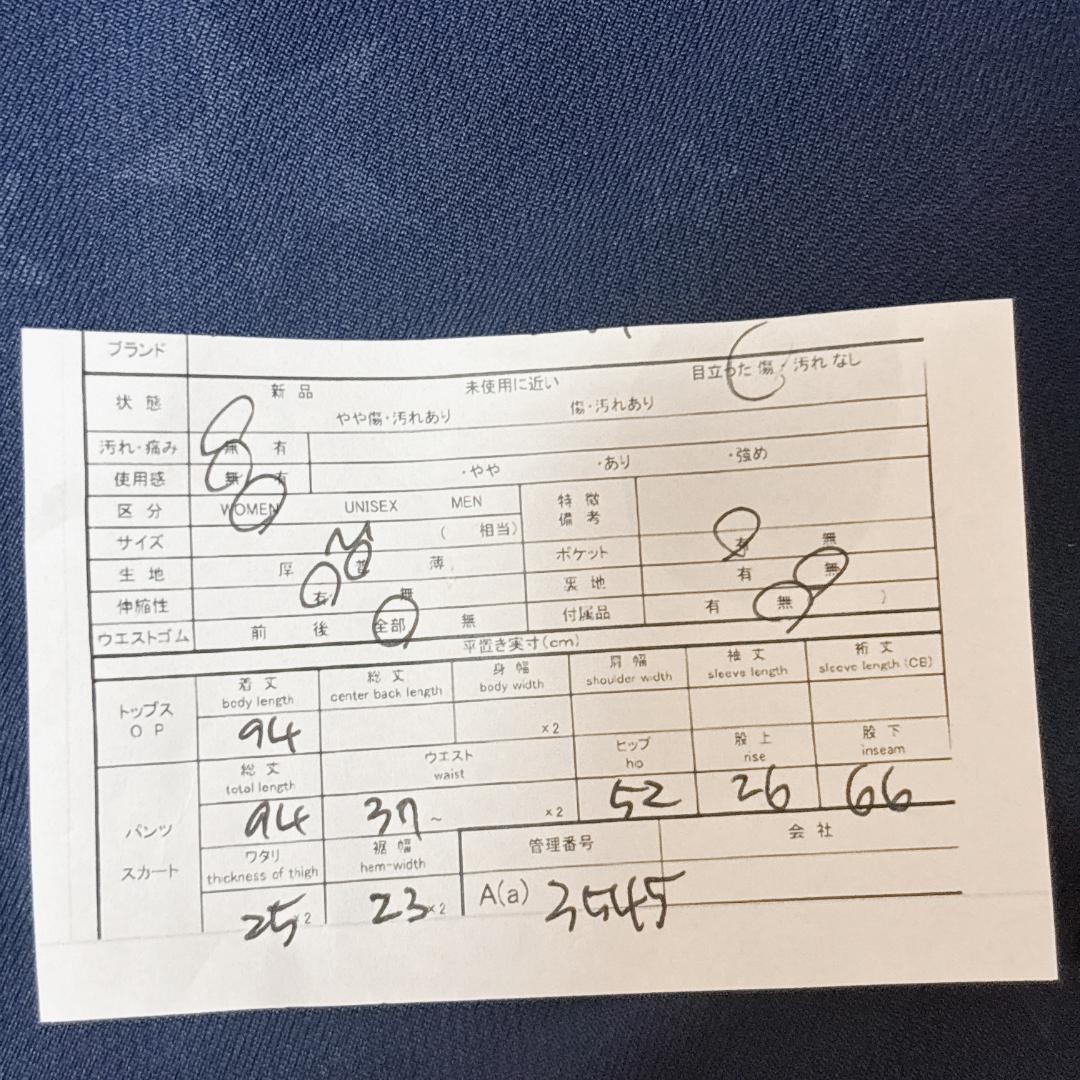 ブランド
状態 新品 未使用に近い 目立った傷・汚れなし
やや傷・汚れあり 傷・汚れあり
汚れ・痛み 無 有
使用感 無 有 ・やや ・あり ・強め
区分 WOMEN UNISEX MEN 特徴
備考
サイズ M ( 相当)
生地 厚 普 薄 ポケット 有 無
伸縮性 有 無 裏地 有 無
ウエストゴム 前 後 全部 無 付属品 有 無 )
平置き実寸(cm)
トップス
OP
着丈 総丈 身幅 肩幅 袖丈 裄丈
body length center back length body width shoulder width sleeve length sleeve length (CB)
94 ×2
パンツ
スカート
総丈 ウエスト ヒップ 股上 股下
total length waist hip rise inseam
94 37 ~ ×2 52 26 66
ワタリ 裾幅 管理番号 会社
thickness of thigh hem-width
25 ×2 23 ×2 A(a) 3545